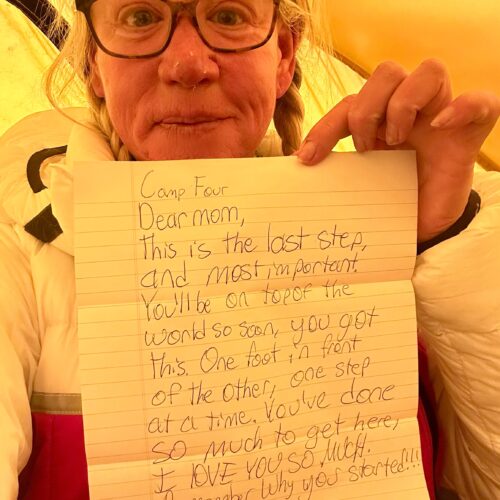 Camp Four
Dear mom,
This is the last step,
and most important.
You'll be on top of the
world so soon, you got
this. One foot in front
of the other, one step
at a time. You've done
so much to get here,
I LOVE YOU SO MUCH.
Remember why you started!!!